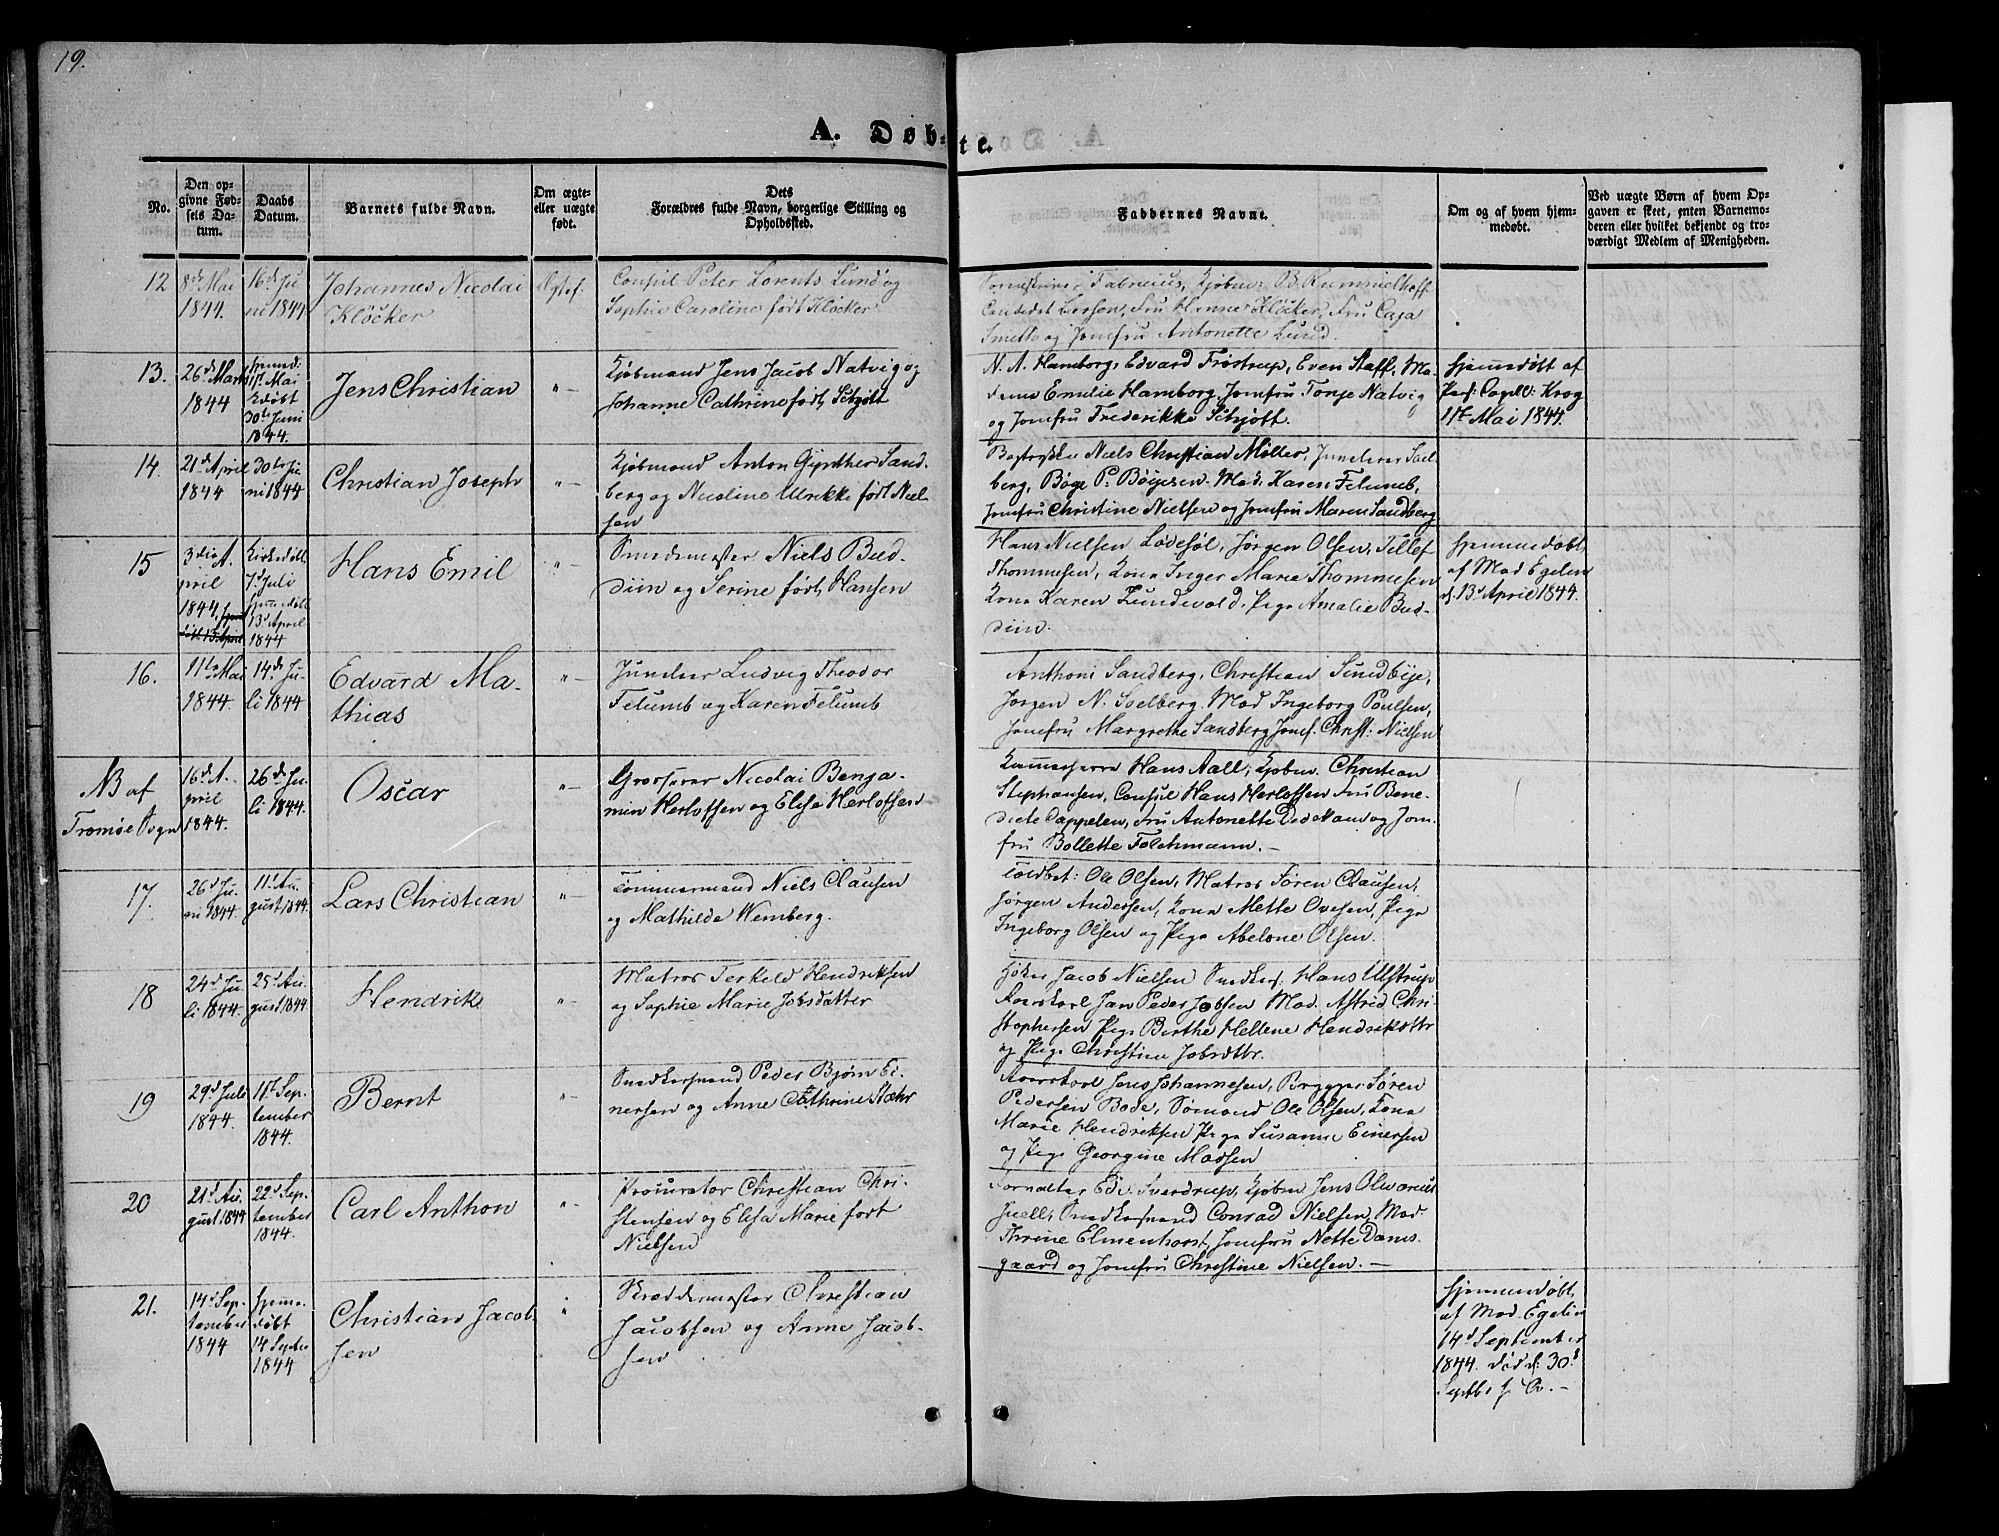 19.
A. Døb-
te.
No.
Den op-
givne Fød-
sels Da-
tum.
Daabs
Datum.
Barnets fulde Navn.
Om ægte-
eller uægte
født.
Dets
Forældres fulde Navn, borgerlige Stilling og
Opholdssted.
Faddernes Navne.
Om og af hvem hjem-
medøbt.
Ved uægte Børn af hvem Op-
gaven er skeet, enten Barnemo-
deren eller hvilket bekjendt og tro-
værdigt Medlem af Menigheden.
12
8de Mai
1844.
16de Ju
ni 1844
Johannes Nicolai
Klöcker
Ægtef.
Consul Peter Lorents Lund og
Sophie Caroline født Klöcker
Fabricius, Kjøbm: B. Rummelhoff
Candidat Larsen, Fru Hanne Klöcker, Fru Caja
Smith og Jomfru Antonette Lund.
13.
26de Marts
1844
1st Mai
døbt
30te Juni
1844.
Jens Christian
"-
Kjøbmand Jens Jacob Natvig og
Johanne Cathrine født Schjött
N. A. Hamborg, Edvard Frøstrup, Even Staff, Ma-
dame Emilie Hamborg, Jomfru Tonje Natvig
og Jomfru Frederikke Schjött.
hjemmedøbt af
Pers: Capell: Krog
1st Mai 1844.
14.
21de April
1844
30te Ju
ni 1844
Christian Joseph
"-
Kjøbmand Anton Gynther Sand-
berg og Nicoline Ulrikke født Niel-
sen
Niels Christian Møller, Junckerer Soel-
berg, Böge P. Böijesen. Mad. Karen Felumb,
Jomfru Christine Nielsen og Jomfru Maren Sandberg
15
3die A-
pril
1844,
døbt 13 April
Kirkedøbt
7d Juli
hjemmedøbt
13d April
1844
Hans Emil
"-
Smedemester Niels Bud-
diin og Serine født Hansen
Hans Nielsen Lødesøl, Jørgen Olsen, Tellef
Thommesen, Kona Inger Marie Thommesen
Kona Karen Lundevold, Pige Amalie Bud-
diin.
hjemmedøbt
af Mad Egelin
d. 13d April 1844.
16.
11te Mai
1844.
14de Ju-
li 1844
Edvard Ma-
thias
"-
Juncker Ludvig Theodor
Felumb og Karen Felumb
Anthoni Sandberg, Christian Sundbye,
Jørgen N. Soelberg. Mad Ingeborg Poulsen,
Jomfru Margrethe Sandberg Jomf. Christ: Nielsen
NB af
Tromøe Sogn
16de A-
pril
1844.
26de Ju-
li 1844
Oscar
"-
Grosserer Nicolai Benja-
min Herlofsen og Elise Herlofsen
Kammerherre Hans Aall, Kjøbm. Christian
Stephansen, Consul Hans Herlofsen Fru Bene-
dicte Cappelen, Fru Antonette Dedekam og Jom
fru Bollette Folchmann.-
17.
26d Ju-
ni 1844.
11t Au-
gust 1844.
Lars Christian
"-
Tømmermand Niels Clausen
og Mathilde Wemberg.
Toldbet: Ole Olsen, Matros Søren Clausen,
Jørgen Andersen, Kona Mette Ovesen, Pige
Ingeborg Olsen og Pige Abelone Olsen.
18
24d Ju-
li 1844.
25d Au-
gust 1844.
Hendrik
"-
Matros Terkeld Hendriksen
og Sophie Marie Jobsdatter
Høker Jacob Nielsen Snedkers: Hans Ulstrup
Roerskarl Jan Peder Jobsen Mad. Astrid Chri-
stophersen Pige Birthe Hellene Hendriksdttr
og Pige Christine Jobsdttr.
19
29d Juli
1844.
1st Sep-
tember
1844.
Bernt
"-
Snedkersvend Peder Bjørn Ei-
nersen og Anne Cathrine Stæhr
Roerskarl Jens Johannesen, Brygger Søren
Pedersen Bode, Sømand Ole Olsen, Kona
Marie Hendriksen Pige Susanne Einersen
og Pige Georgine Madsen
20
21d Au-
gust 1844
22d Sep-
tember
1844.
Carl Anthon
"-
Procurator Christian Chri-
stensen og Elisa Marie født
Nielsen
Forvalter Ed: Sverdrup, Kjøbm Jens Olvarius
Juell, Snedkersvend Conrad Nielsen, Mad.
Thrine Elmenhorst, Jomfru Nette Dams-
gaard og Jomfru Christine Nielsen.-
21.
14d Sep-
tember
1844
hjemme-
døbt
14 Septbr
1844
Christian Jacob-
sen
"
Skreddermester Christian
Jacobsen og Anne Jacob-
sen
hjemmedøbt
af Mad Egelin
14d September
1844. død d: 30d
Septb: s. A.-